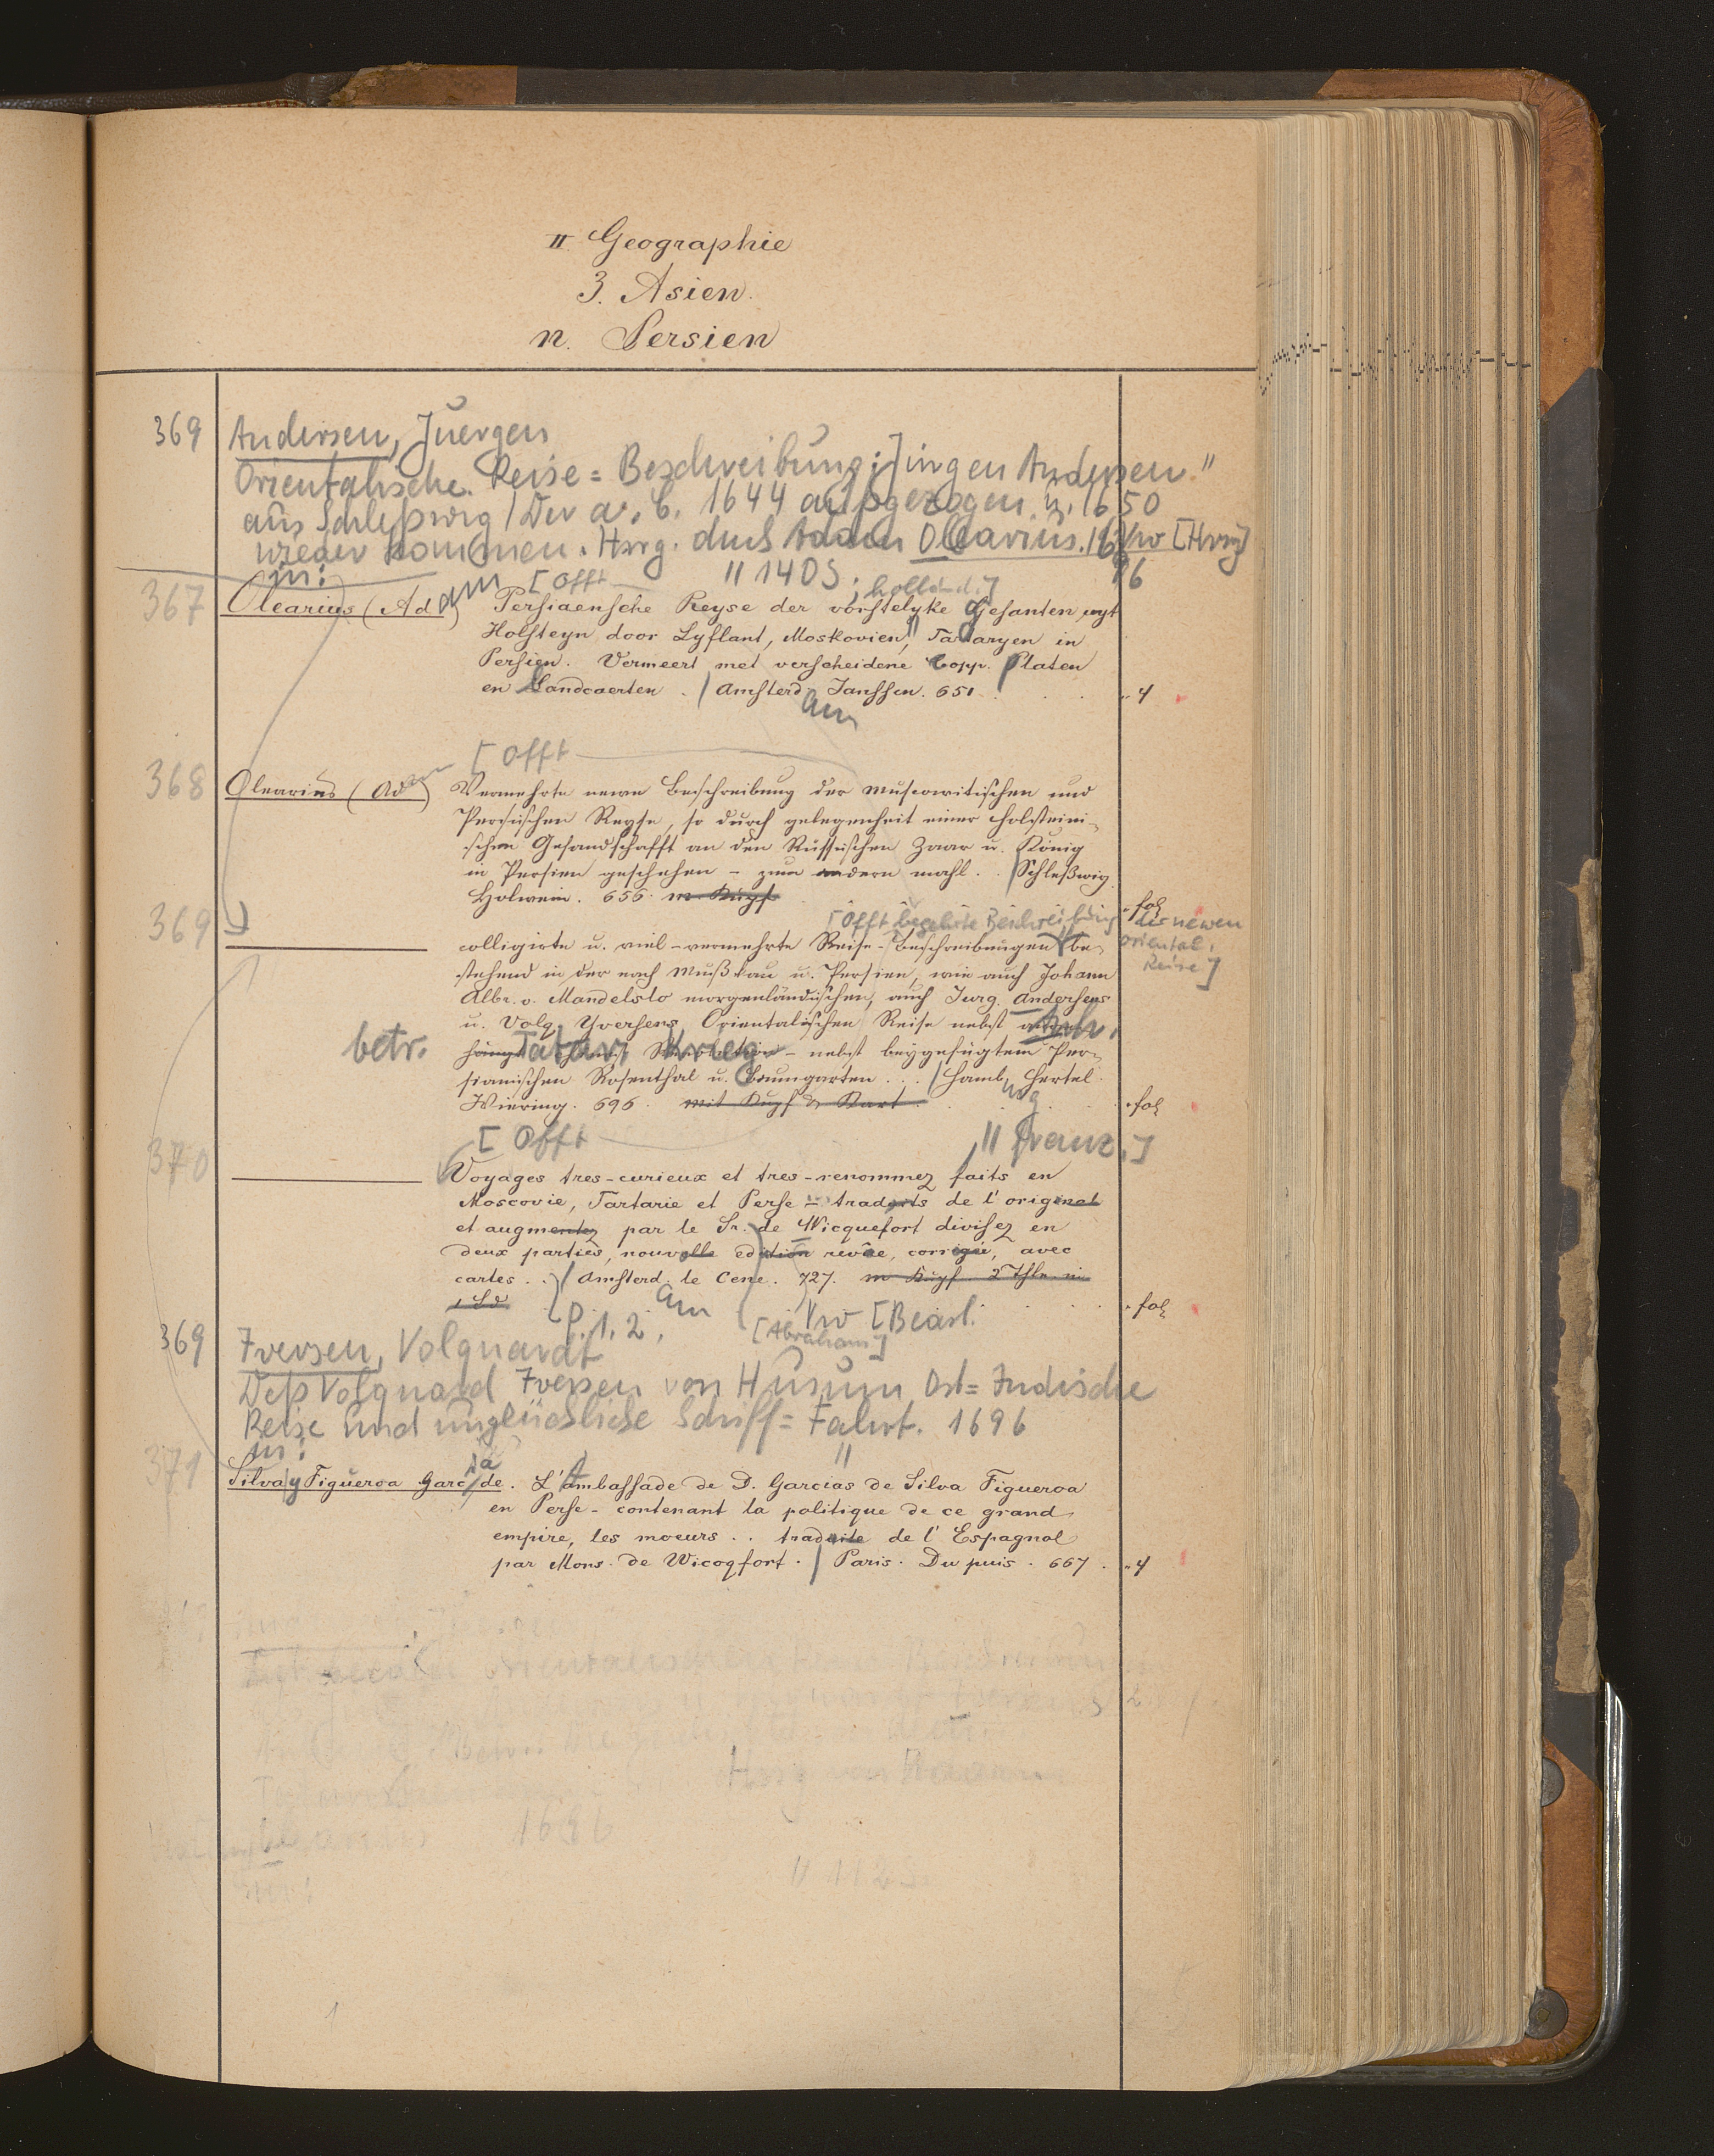 II. Geographie
3. Asien.
n. Persien
369 Andersen, Juergen
Orientalische Reise=Beschreibung: Jürgen Andersen
aus Schleßwig / Der a. C. 1644 außgezogen u. 1650
wieder kommen. Hrsg. durch Adam Olearius. 1696 Vw [Hrsg]
in:
[Offt // 1405; holländ.]
367 Olearius (Adam) Persiaensche Reyse der vorstelyke Gesanten uyt
Holsteyn door Lyflant, Moskovien, Tartaryen in
Persien. Vermeert met verscheidene Copp. Platen
en Landcaerten. / Amsterdam Janssen. 651. 4
[Offt
368 Olearius (Adam) Vermehrte newe Beschreibung der muscowitischen und
Persischen Reyse, so durch gelegenheit einer Holsteini-
schen Gesandschafft an den Russischen Zaar u. König
in Persien geschehen - zum andern mahl. . / Schleßwig
Holwein. 656. m. Kupf fol
[Offt begehrte Beschreibung der newen
oriental.
Reise]
369 colligirte u. viel-vermehrte Reise-Beschreibungen be-
stehend in der nach Mußkau u. Persien, wie auch Johann
Albr. v. Mandelslo morgenländischen, auch Jurg. Andersens
u. Volq. Yversens Orientalischen Reise nebst
betr. Tatar. Krieg - nebst beygefügtem Per-
sianischen Rosenthal u. Baumgarten . . . / Hamburg Hertel
Wiering. 696. mit Kupf & Kart. fol
[Offt // franz.]
370 Voyages tres-curieux et tres-renommez faits en
Moscovie, Tartarie et Perse - traduits de l'original
et augmentez par le Sr. de Wicquefort divisez en
deux parties, nouvelle edition revûe, corrigée, avec
cartes . . / Amsterdam le Cene. 727. m Kupf 2 Thle in
1 Bd fol
p. 1. 2. Vw [Bearb.
[Abraham]
369 Iversen, Volquardt
Deß Volquard Iversen von Husum Ost=Indische
Reise und unglückliche Schiff=Fahrt. 1696
in: //
371 Silva y Figueroa Garcia de. L'Ambassade de D. Garcias de Silva Figueroa
en Perse - contenant la politique de ce grand
empire, les moeurs . . traduite de l'Espagnol
par Mons. de Wicqfort. / Paris. Du puis. 667. 4
1696